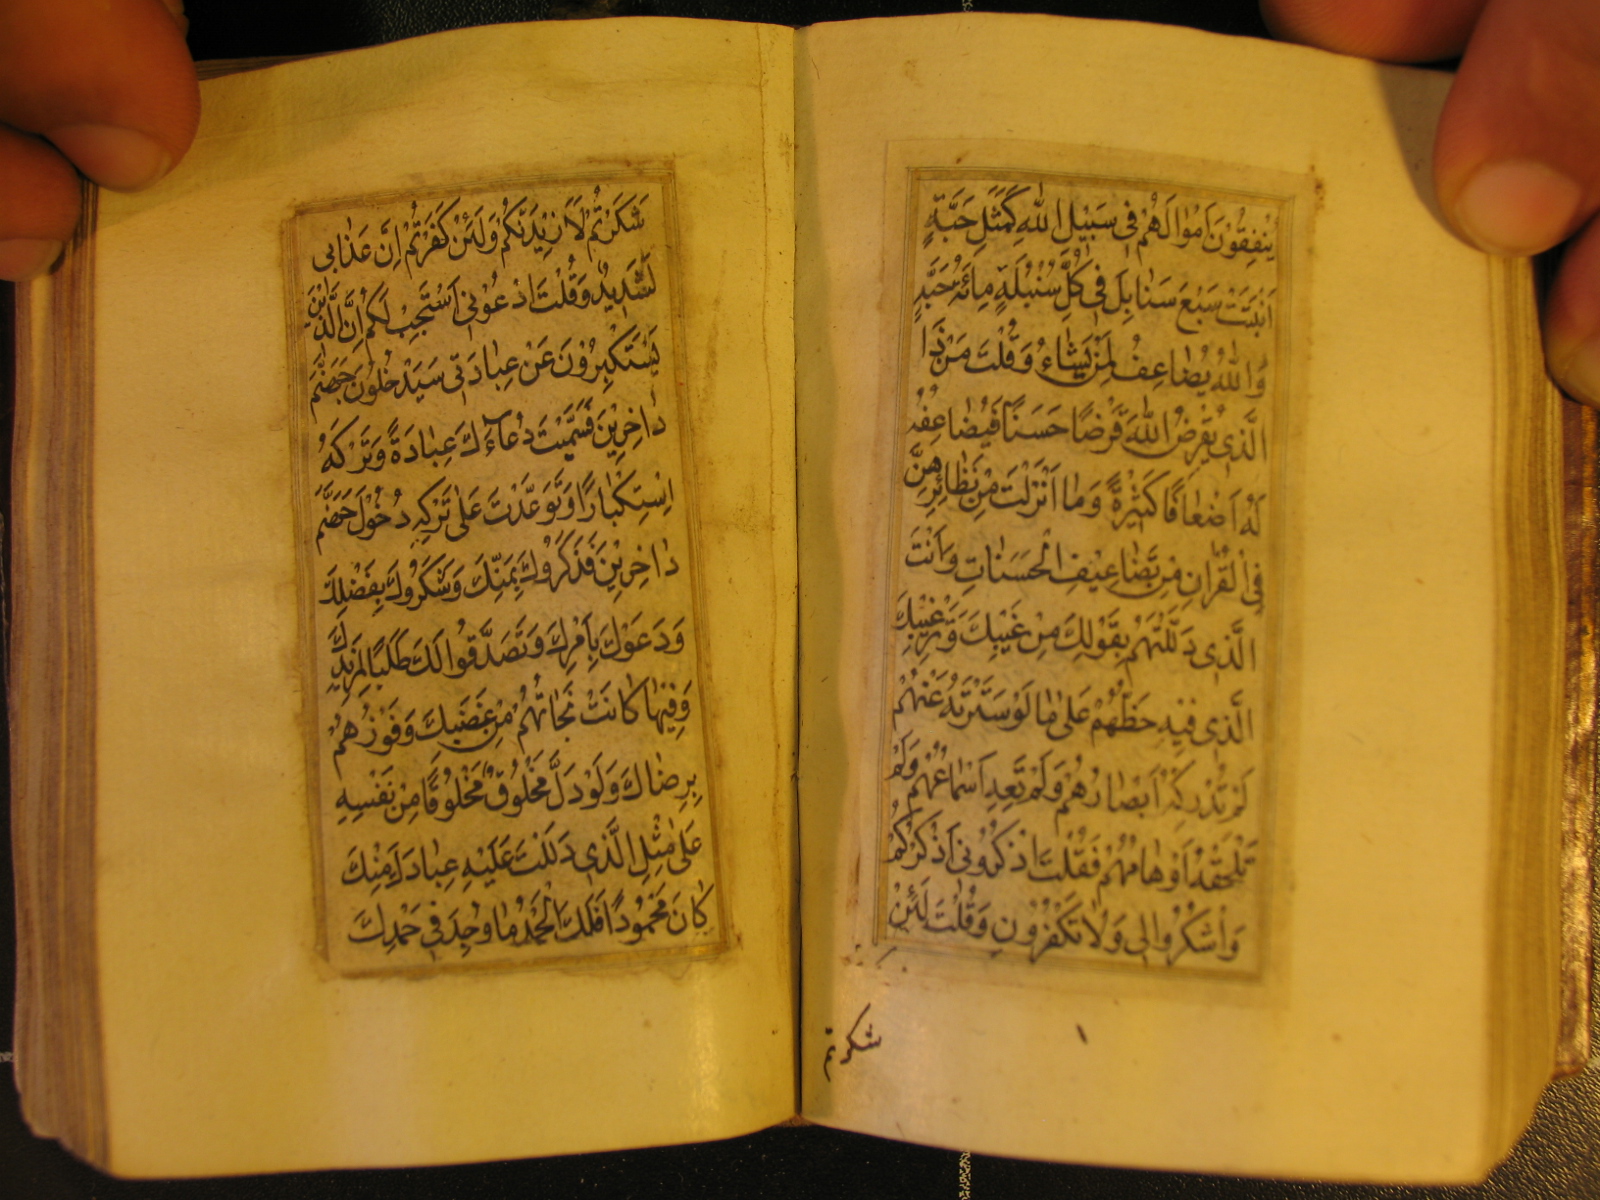 يُنْفِقُوْنَ اَمْوالَهُمْ فى سَبيْلِ اللهِ كَمَثَلِ حَبَّةٍ
اَنْبَتَتْ سَبْعَ سَنابِلَ فى كُلِّ سُنْبُلَةٍ مِائَةُ حَبَّةٍ
وَاللهُ يُضاعِفُ لِمَنْ يَشاءُ وَقُلْتَ مَنْ ذَا
الَّذى يُقْرِضُ اللهَ قَرْضًا حَسَنًا فَيُضاعِفَهُ
لَهُ اَضْعافًا كَثيْرَةً وَما اَنْزَلْتَ مِنْ نَظائِرِهِنَّ
فِى الْقُرْانِ مِنْ تَضاعيْفِ الْحَسَناتِ وَاَنْتَ
الَّذى دَلَلْتَهُمْ بِقَوْلِكَ مِنْ غَيْبِكَ وَتَرْغيْبِكَ
الَّذى فيْهِ حَظُّهُمْ عَلى ما لَوْ سَتَرْتَهُ عَنْهُمْ
لَمْ تُدْرِكْهُ اَبْصارُهُمْ وَلَمْ تَعِهِ اَسْماعُهُمْ وَلَمْ
تَلْحَقْهُ اَوْهامُهُمْ فَقُلْتَ اذْكُرُونى اَذْكُرْكُمْ
وَاشْكُرُوا لى وَلا تَكْفُرُوْنِ وَقُلْتَ لَئِنْ
شكرتم
١
شَكَرْتُمْ لَاَزيْدَنَّكُمْ وَلَئِنْ كَفَرْتُمْ اِنَّ عَذابى
لَشَديْدٌ وَقُلْتَ ادْعُوْنى اَسْتَجِبْ لَكُمْ اِنَّ الَّذيْنَ
يَسْتَكْبِرُوْنَ عَنْ عِبادَتى سَيَدْخُلُوْنَ جَهَنَّمَ
داخِريْنَ فَسَمَّيْتَ دُعآءَكَ عِبادَةً وَتَرْكَهُ
اسْتِكْبارًا وَتَوَعَّدْتَ عَلى تَرْكِهِ دُخُوْلَ جَهَنَّمَ
داخِريْنَ فَذَكَرُوْكَ بِمَنِّكَ وَشَكَرُوْكَ بِفَضْلِكَ
وَدَعَوْكَ بِاَمْرِكَ وَتَصَدَّقُوا لَكَ طَلَبًا لِمَزيْدِكَ
وَفيْها كانَتْ نَجاتُهُمْ مِنْ غَضَبِكَ وَفَوْزُهُمْ
بِرِضاكَ وَلَوْ دَلَّ مَخْلُوْقٌ مَخْلُوْقًا مِنْ نَفْسِهِ
عَلى مِثْلِ الَّذى دَلَلْتَ عَلَيْهِ عِبادَكَ مِنْكَ
كانَ مَحْمُوْدًا فَلَكَ الْحَمْدُ ما وُجِدَ فى حَمْدِكَ